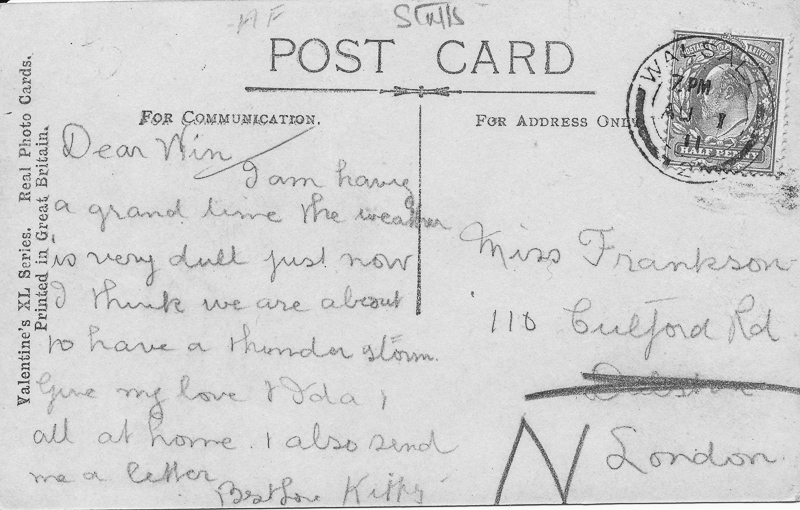 POST CARD
FOR COMMUNICATION.
FOR ADDRESS ONLY
Valentine's XL Series. Real Photo Cards.
Printed in Great Britain.
WALSALL
7. PM
1
11
HALF PENNY
Dear Win
I am having
a grand time the weather
is very dull just now
I think we are about
to have a thunder storm.
Give my love to Ida &
all at home. & also send
me a letter
Best love Kitty
Miss Frankson
110 Culford Rd
London
N